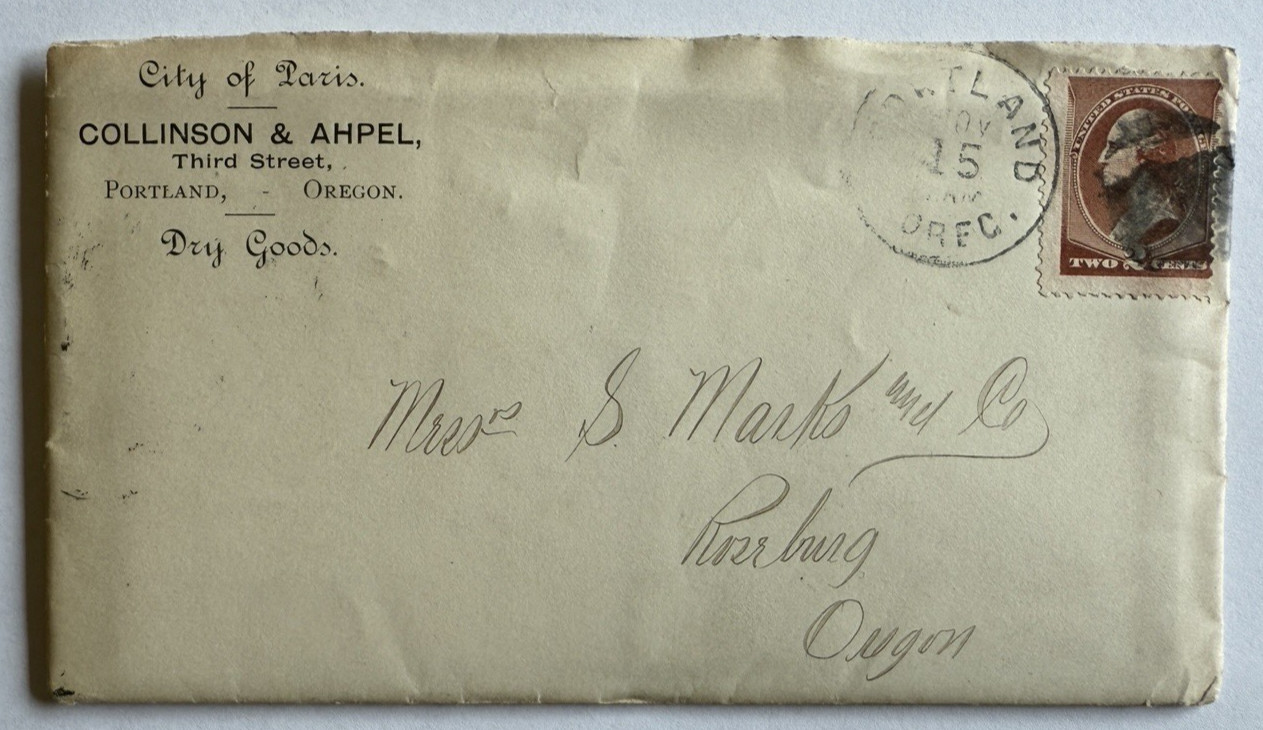 City of Paris.
COLLINSON & AHPEL,
Third Street,
PORTLAND, - OREGON.
Dry Goods.
PORTLAND
NOV
15
AM
OREG.
UNITED STATES POSTAGE
TWO 2 CENTS
Messrs S. Marks and Co
Roseburg
Oregon